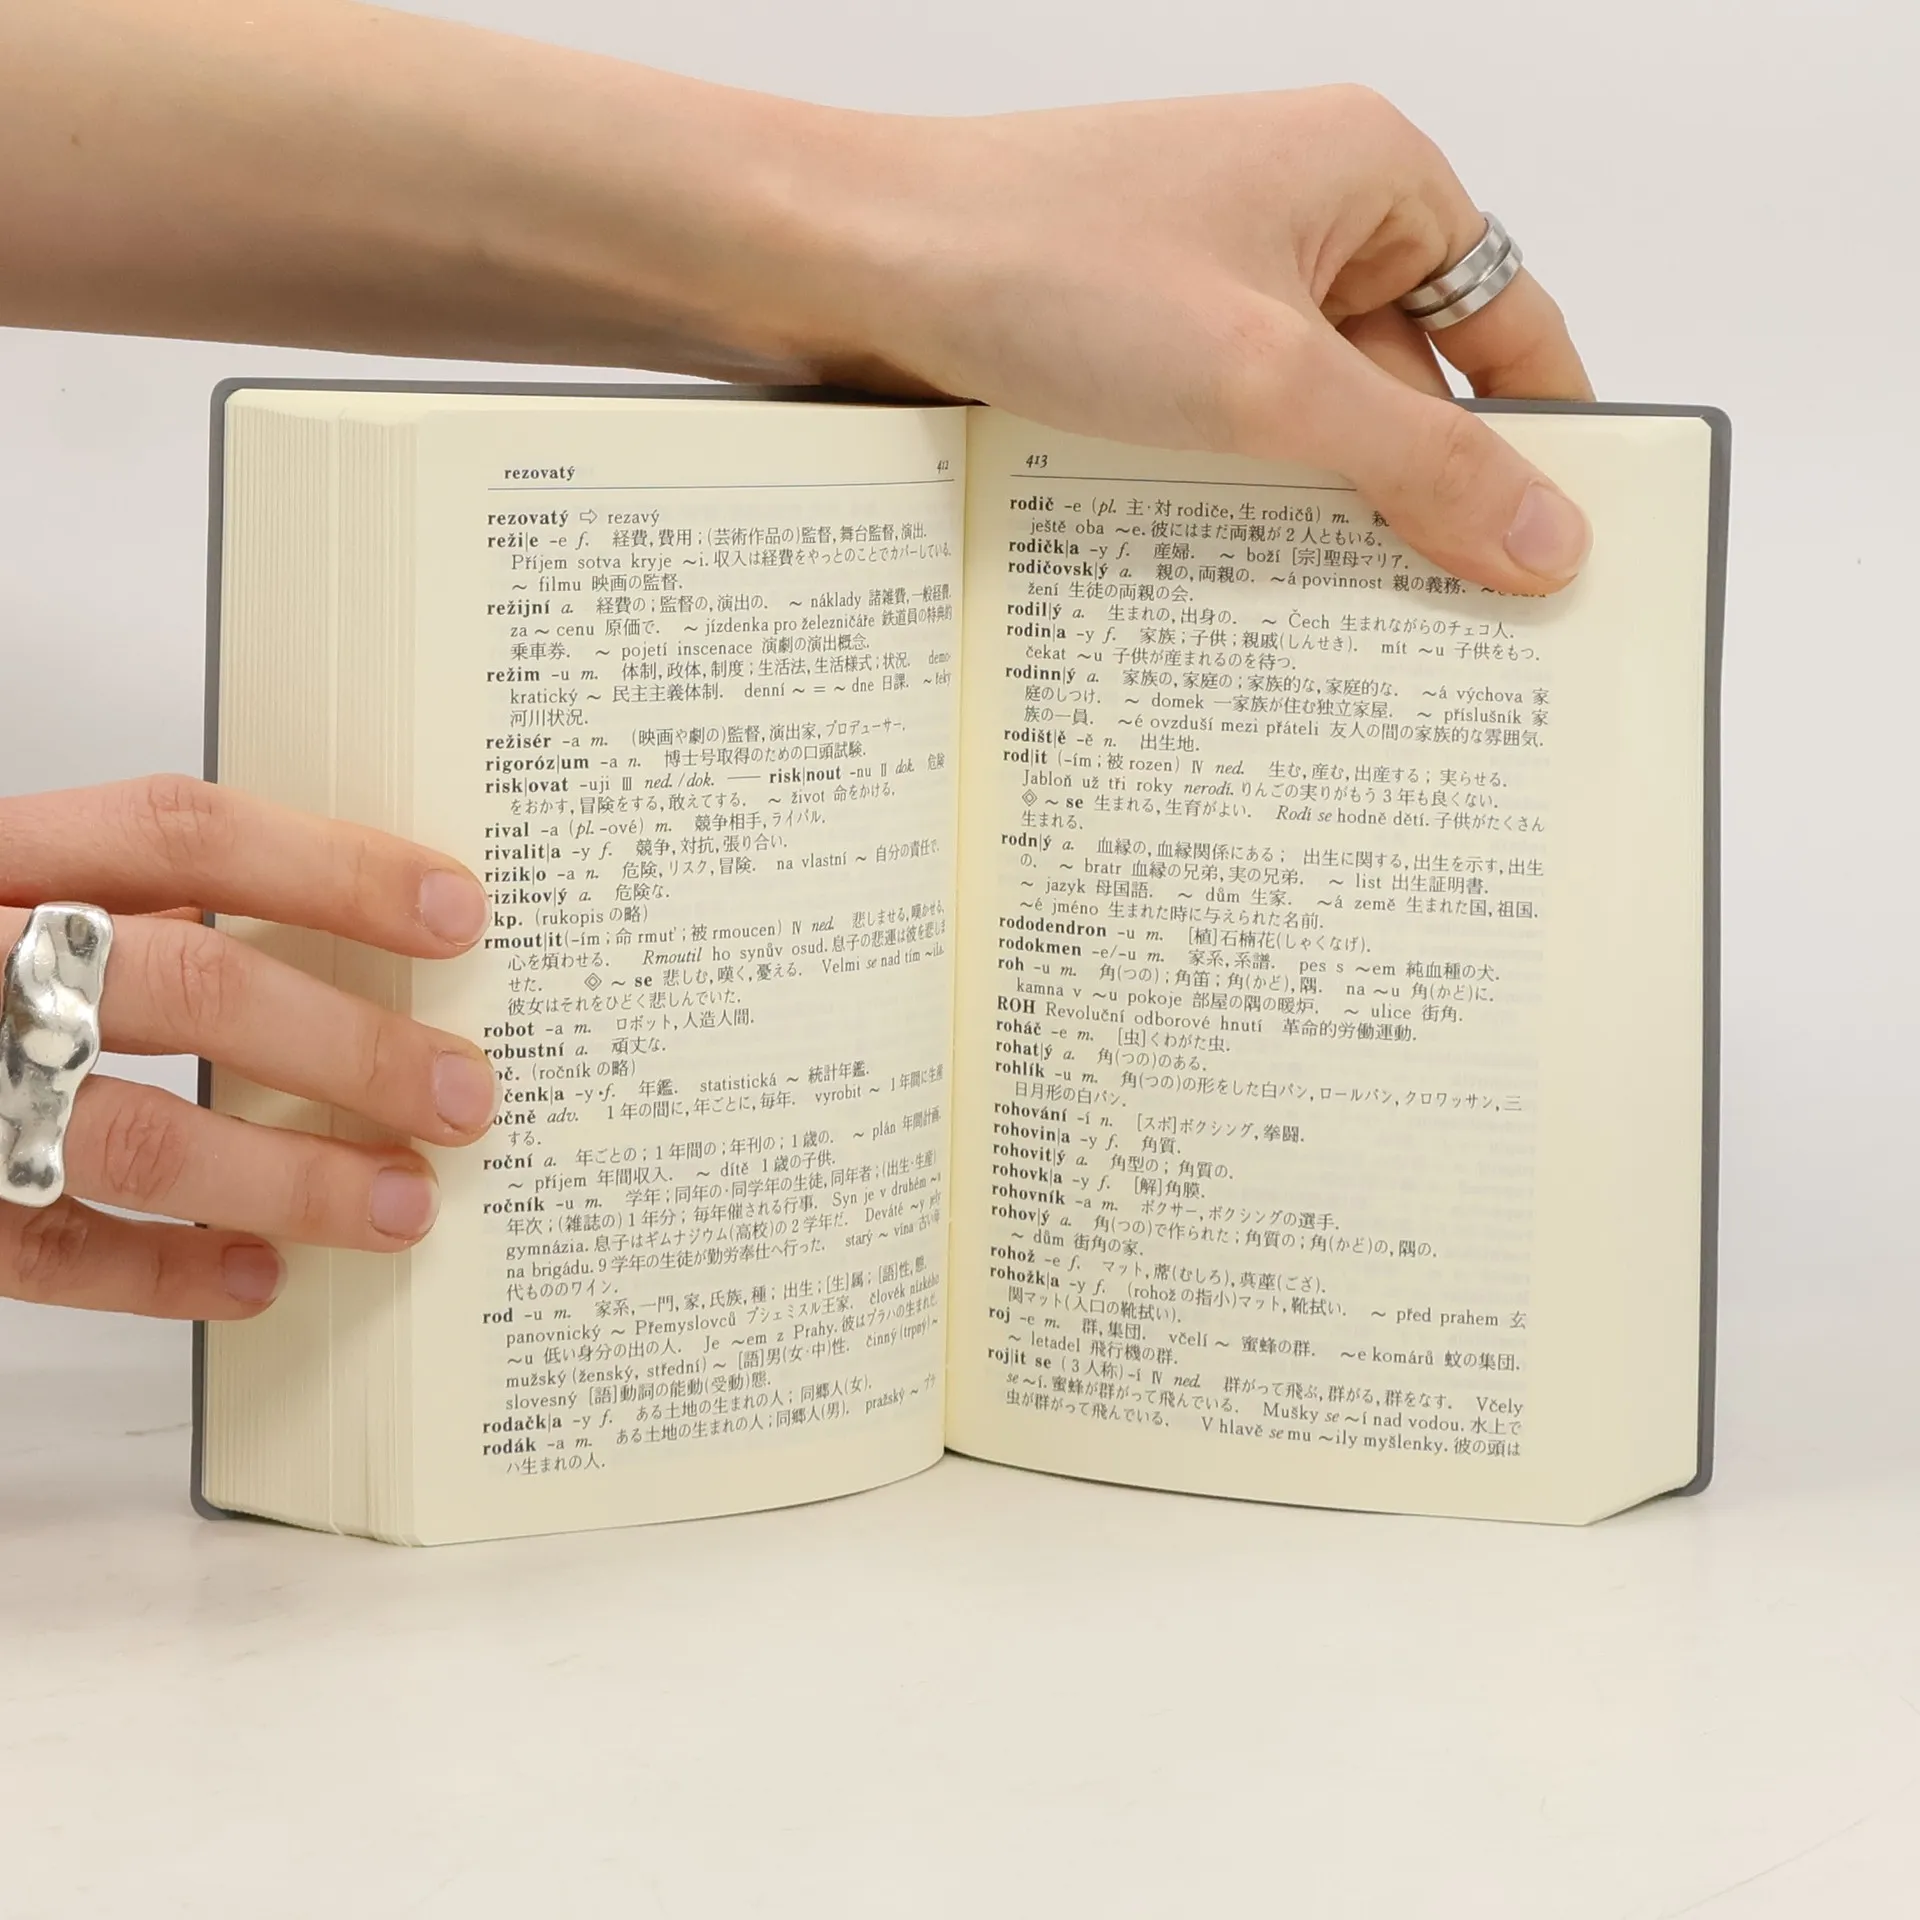 rezovatý 412
rezovatý ⇨ rezavý
reži|e -e f. 経費,費用;(芸術作品の)監督,舞台監督,演出.
Příjem sotva kryje ～i.収入は経費をやっとのことでカバーしている.
～ filmu 映画の監督.
režijní a. 経費の;監督の,演出の. ～ náklady 諸雑費,一般経費.
za ～ cenu 原価で. ～ jízdenka pro železničáře 鉄道員の特典的
乗車券. ～ pojetí inscenace 演劇の演出概念.
režim -u m. 体制,政体,制度;生活法,生活様式;状況. demo-
kratický ～ 民主主義体制. denní ～ = ～ dne 日課. ～ řeky
河川状況.
režisér -a m. (映画や劇の)監督,演出家,プロデューサー.
rigoróz|um -a n. 博士号取得のための口頭試験.
risk|ovat -uji Ⅲ ned./dok. ── risk|nout -nu Ⅱ dok. 危険
をおかす,冒険をする,敢えてする. ～ život 命をかける.
rival -a (pl. -ové) m. 競争相手,ライバル.
rivalit|a -y f. 競争,対抗,張り合い.
rizik|o -a n. 危険,リスク,冒険. na vlastní ～ 自分の責任で.
rizikov|ý a. 危険な.
kp. (rukopis の略)
rmout|it(-ím;命 rmuť;被 rmoucen) Ⅳ ned. 悲しませる,嘆かせる,
心を煩わせる. Rmoutil ho synův osud.息子の悲運は彼を悲しま
せた. ◈ ～ se 悲しむ,嘆く,憂える. Velmi se nad tím ～ila.
彼女はそれをひどく悲しんでいた.
robot -a m. ロボット,人造人間.
robustní a. 頑丈な.
oč. (ročník の略)
čenk|a -y f. 年鑑. statistická ～ 統計年鑑.
očně adv. 1年の間に,年ごとに,毎年. vyrobit ～ 1年間に生産
する.
roční a. 年ごとの;1年間の;年刊の;1歳の. ～ plán 年間計画.
～ příjem 年間収入. ～ dítě 1歳の子供.
ročník -u m. 学年;同年の·同学年の生徒,同年者;(出生·生産)
年次;(雑誌の)1年分;毎年催される行事. Syn je v druhém ～u
gymnázia.息子はギムナジウム(高校)の2学年だ. Deváté ～y jely
na brigádu.9学年の生徒が勤労奉仕へ行った. starý ～ vína 古い年
代もののワイン.
rod -u m. 家系,一門,家,氏族,種;出生;[生]属;[語]性,態.
panovnický ～ Přemyslovců プシェミスル王家. člověk nízkého
～u 低い身分の出の人. Je ～em z Prahy.彼はプラハの生まれだ.
mužský (ženský, střední) ～ [語]男(女·中)性. činný (trpný) ～
slovesný [語]動詞の能動(受動)態.
rodačk|a -y f. ある土地の生まれの人;同郷人(女).
rodák -a m. ある土地の生まれの人;同郷人(男). pražský ～ プラ
ハ生まれの人.
413
rodič -e (pl. 主·対 rodiče,生 rodičů) m. 親
ještě oba ～e.彼にはまだ両親が2人ともいる.
rodičk|a -y f. 産婦. ～ boží [宗]聖母マリア.
rodičovsk|ý a. 親の,両親の. ～á povinnost 親の義務.
žení 生徒の両親の会.
rodil|ý a. 生まれの,出身の. ～ Čech 生まれながらのチェコ人.
rodin|a -y f. 家族;子供;親戚(しんせき). mít ～u 子供をもつ.
čekat ～u 子供が産まれるのを待つ.
rodinn|ý a. 家族の,家庭の;家族的な,家庭的な. ～á výchova 家
庭のしつけ. ～ domek 一家族が住む独立家屋. ～ příslušník 家
族の一員. ～é ovzduší mezi přáteli 友人の間の家族的な雰囲気.
rodišt|ě -ě n. 出生地.
rod|it (-ím;被 rozen) Ⅳ ned. 生む,産む,出産する; 実らせる.
Jabloň už tři roky nerodí.りんごの実りがもう3年も良くない.
◈ ～ se 生まれる,生育がよい. Rodí se hodně dětí.子供がたくさん
生まれる.
rodn|ý a. 血縁の,血縁関係にある; 出生に関する,出生を示す,出生
の. ～ bratr 血縁の兄弟,実の兄弟. ～ list 出生証明書.
～ jazyk 母国語. ～ dům 生家. ～á země 生まれた国,祖国.
～é jméno 生まれた時に与えられた名前.
rododendron -u m. [植]石楠花(しゃくなげ).
rodokmen -e/-u m. 家系,系譜. pes s ～em 純血種の犬.
roh -u m. 角(つの);角笛;角(かど),隅. na ～u 角(かど)に.
kamna v ～u pokoje 部屋の隅の暖炉. ～ ulice 街角.
ROH Revoluční odborové hnutí 革命的労働運動.
roháč -e m. [虫]くわがた虫.
rohat|ý a. 角(つの)のある.
rohlík -u m. 角(つの)の形をした白パン,ロールパン,クロワッサン,三
日月形の白パン.
rohování -í n. [スポ]ボクシング,拳闘.
rohovin|a -y f. 角質.
rohovit|ý a. 角型の;角質の.
rohovk|a -y f. [解]角膜.
rohovník -a m. ボクサー,ボクシングの選手.
rohov|ý a. 角(つの)で作られた;角質の;角(かど)の,隅の.
～ dům 街角の家.
rohož -e f. マット,蓆(むしろ),茣蓙(ござ).
rohožk|a -y f. (rohož の指小)マット,靴拭い. ～ před prahem 玄
関マット(入口の靴拭い).
roj -e m. 群,集団. včelí ～ 蜜蜂の群. ～e komárů 蚊の集団.
～ letadel 飛行機の群.
roj|it se (3人称) -í Ⅳ ned. 群がって飛ぶ,群がる,群をなす. Včely
se ～í.蜜蜂が群がって飛んでいる. Mušky se ～í nad vodou.水上で
虫が群がって飛んでいる. V hlavě se mu ～ily myšlenky.彼の頭は